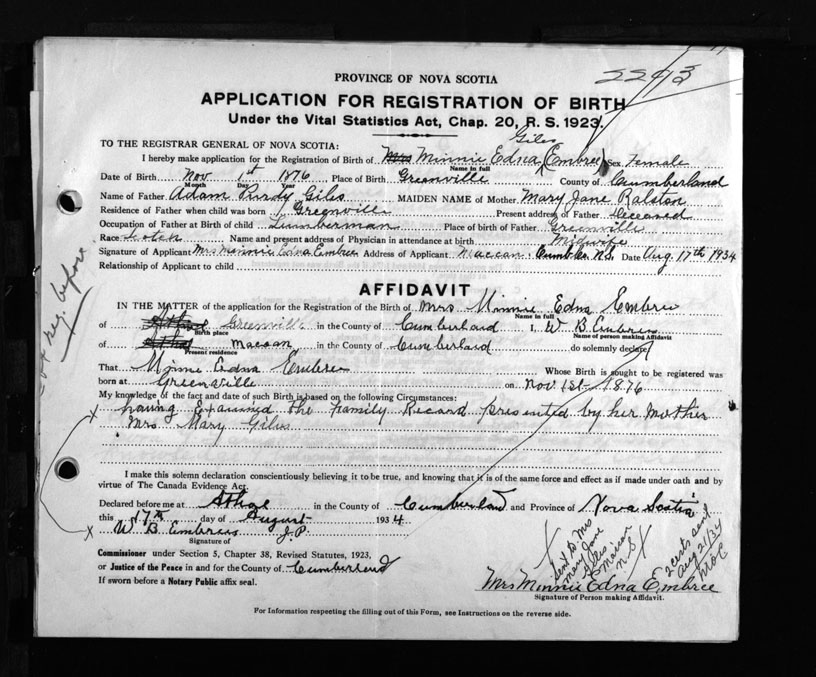 PROVINCE OF NOVA SCOTIA
22913
APPLICATION FOR REGISTRATION OF BIRTH
Under the Vital Statistics Act, Chap. 20, R. S. 1923.
TO THE REGISTRAR GENERAL OF NOVA SCOTIA:
Giles
I hereby make application for the Registration of Birth of Mrs Minnie Edna (Embree) Sex Female
Name in full
Date of Birth Nov. 1st 1876 Place of Birth Greenville County of Cumberland
Month Day Year
Name of Father Adam Purdy Giles MAIDEN NAME of Mother Mary Jane Ralston
Residence of Father when child was born Greenville Present address of Father Deceased
Occupation of Father at Birth of child Lumberman Place of birth of Father Greenville
Race Scotch Name and present address of Physician in attendance at birth Midwife
Signature of Applicant Mrs Minnie Edna Embree Address of Applicant Maccan, Cumb. Co. N.S. Date Aug. 17th 1934
Relationship of Applicant to child
AFFIDAVIT
IN THE MATTER of the application for the Registration of the Birth of Mrs Minnie Edna Embree
Name in full
of Athol Greenville in the County of Cumberland I, W B Embree
Birth place Name of person making Affidavit
of Athol Maccan in the County of Cumberland do solemnly declare
Present residence
That Minnie Edna Embree Whose Birth is sought to be registered was
born at Greenville on Nov 1st 1876
My knowledge of the fact and date of such Birth is based on the following Circumstances:
having Examined the Family Record presented by her Mother
Mrs Mary Giles
I make this solemn declaration conscientiously believing it to be true, and knowing that it is of the same force and effect as if made under oath and by
virtue of The Canada Evidence Act.
Declared before me at Athol in the County of Cumberland and Province of Nova Scotia
this 17th day of August 1934
W B Embree J.P.
Signature of
Commissioner under Section 5, Chapter 38, Revised Statutes, 1923,
or Justice of the Peace in and for the County of Cumberland
If sworn before a Notary Public affix seal.
Mrs Minnie Edna Embree
Signature of Person making Affidavit.
For Information respecting the filling out of this Form, see Instructions on the reverse side.
Not reg. before
Sent to Mrs
Mary Jane
Giles
Maccan
N S
2 certs sent
Aug 21/34